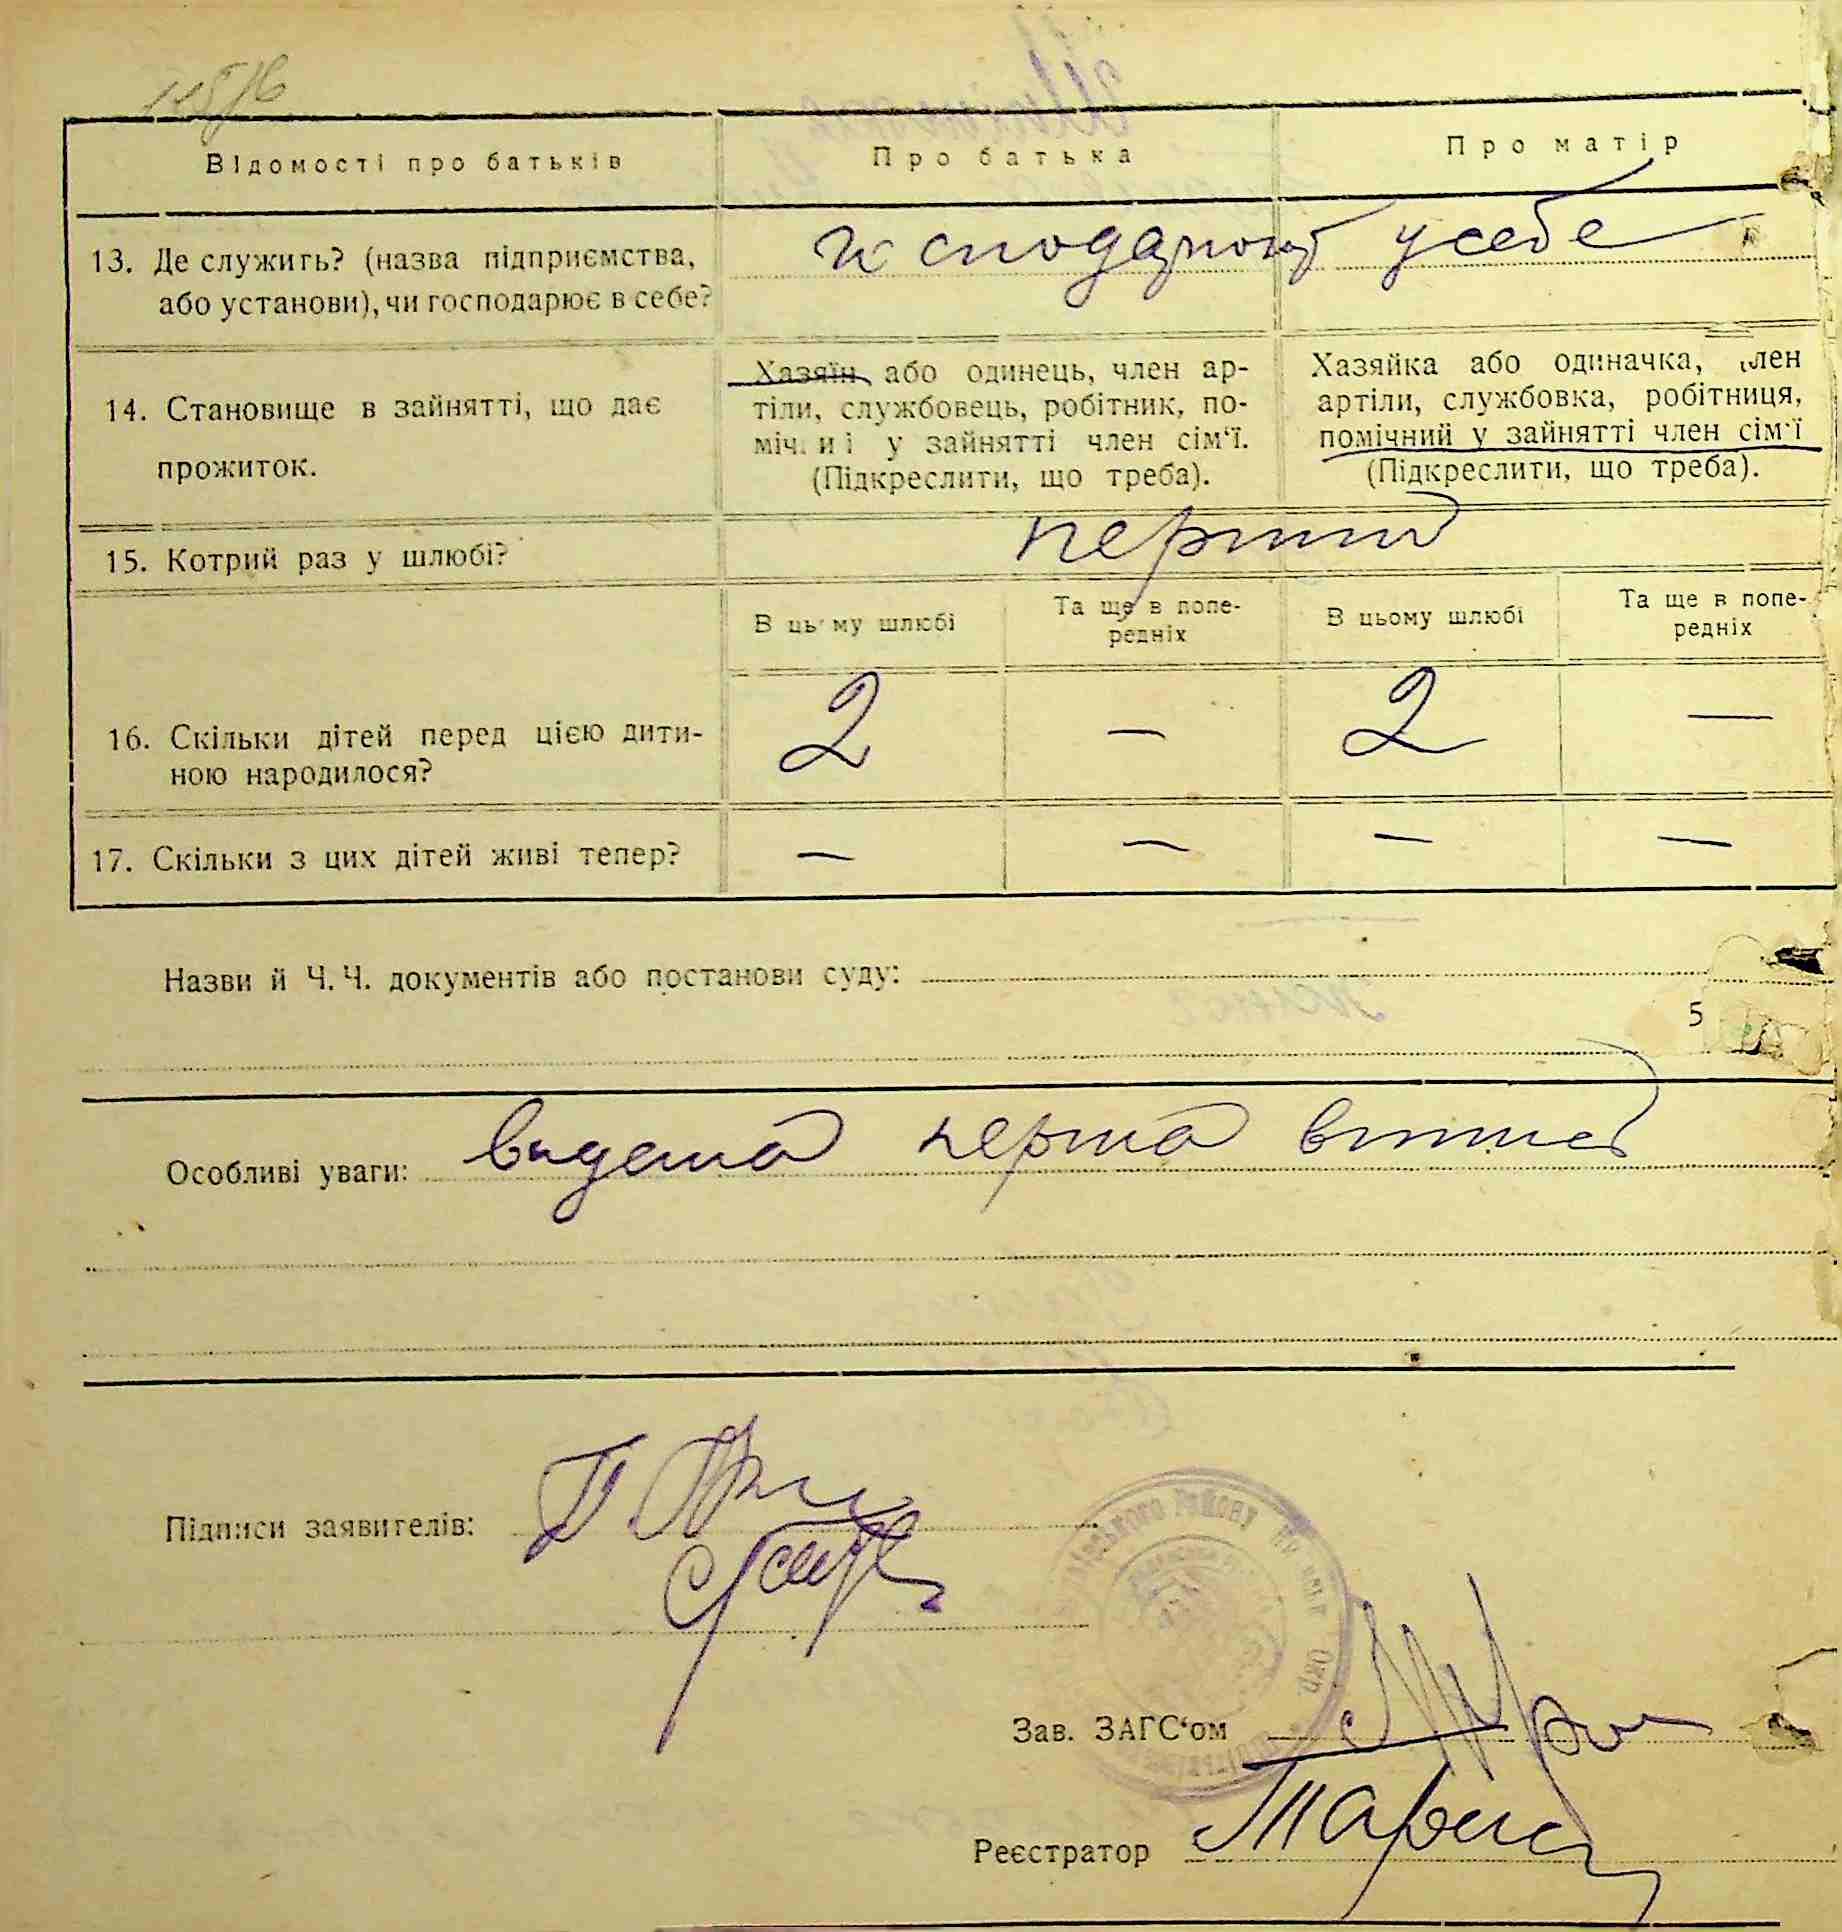 Відомості про батьків
Про батька
Про матір
13. Де служить? (назва підприємства,
або установи), чи господарює в себе?
у себе
14. Становище в зайнятті, що дає
прожиток.
Хазяїн або одинець, член ар-
тіли, службовець, робітник, по-
міч. и і у зайнятті член сім'ї.
(Підкреслити, що треба).
Хазяйка або одиначка, член
артіли, службовка, робітниця,
помічний у зайнятті член сім'ї
(Підкреслити, що треба).
15. Котрий раз у шлюбі?
перший
В цьому шлюбі
Та ще в попе-
редніх
В цьому шлюбі
Та ще в попе-
редніх
16. Скільки дітей перед цією дити-
ною народилося?
2 — 2 —
17. Скільки з цих дітей живі тепер?
— — — —
Назви й Ч. Ч. документів або постанови суду:
5
Особливі уваги: перша
Підписи заявителів:
Зав. ЗАГС'ом
Реєстратор